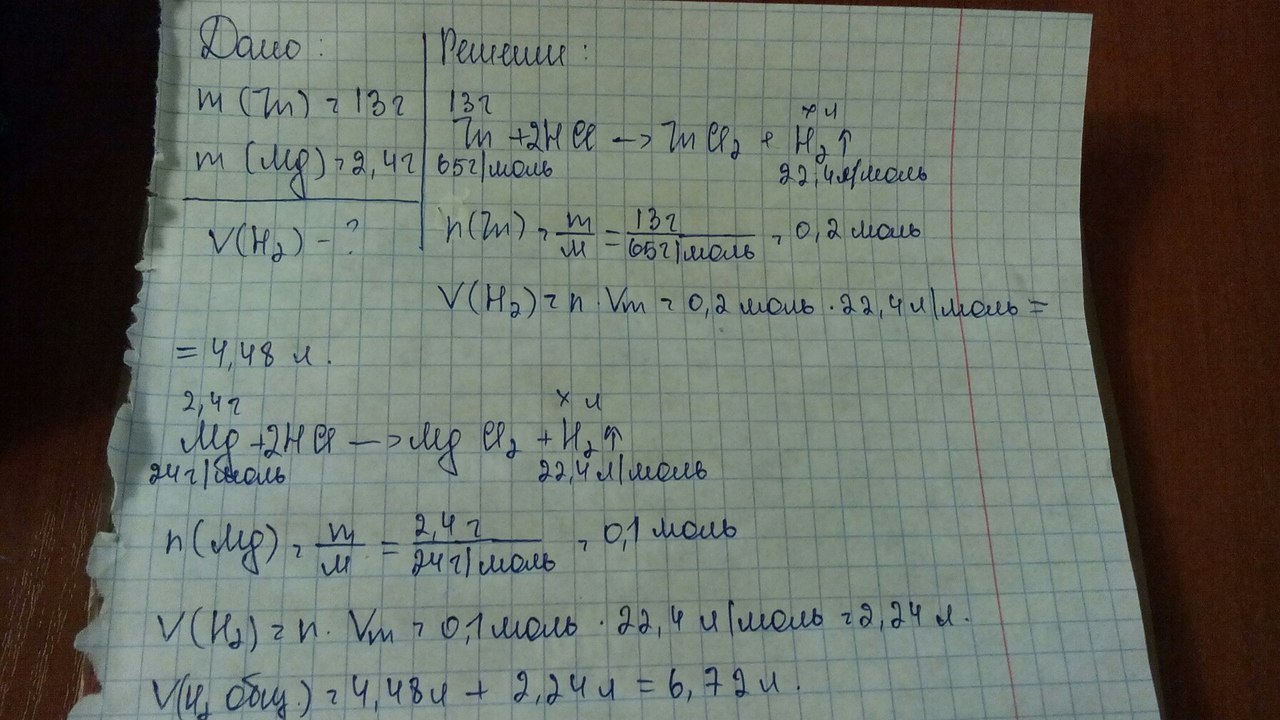 Дано:
m (Zn) = 13г
m (Mg) = 2,4г
V(H₂) - ?
Решение:
13г х л
Zn + 2HCl —> ZnCl₂ + H₂↑
65г/моль 22,4л/моль
n(Zn) = m/M = 13г/65г/моль = 0,2 моль
V(H₂) = n · Vm = 0,2 моль · 22,4 л/моль =
= 4,48 л.
2,4г х л
Mg + 2HCl —> MgCl₂ + H₂↑
24г/моль 22,4л/моль
n(Mg) = m/M = 2,4г/24г/моль = 0,1 моль
V(H₂) = n · Vm = 0,1 моль · 22,4 л/моль = 2,24 л.
V(H₂ общ.) = 4,48л + 2,24л = 6,72л.